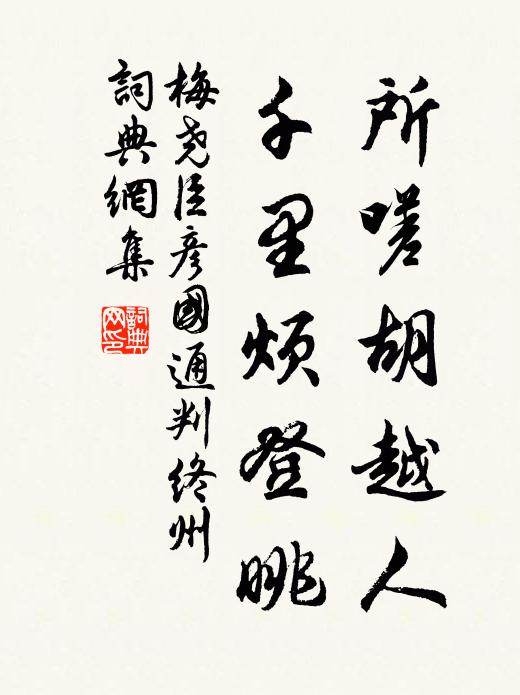 所嗟胡越人
千里煩登眺
梅尧臣彦國通判絳州
詞典網集
詞典网印